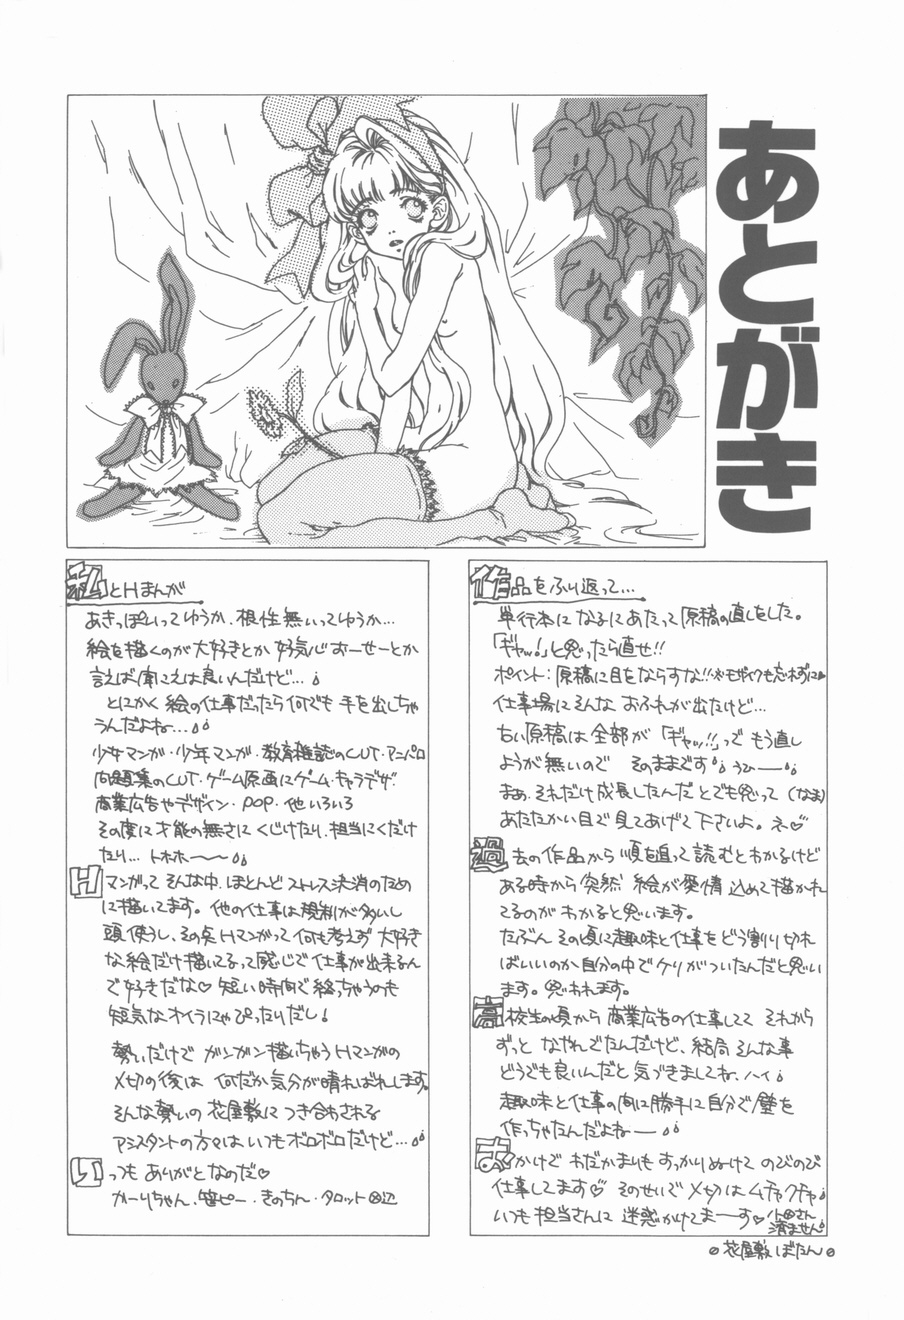 あとがき
作品をふり返って…
単行本になるにあたって原稿の直しをした。
「ギャッ!」と思ったら直せ!!
ポイント:原稿に目をならすな!!※モザイクも忘れずに
仕事場にそんなおふれが出たけど…
古い原稿は全部が「ギャッ!!」でもう直し
ようが無いのでそのままです うひーー
まぁ、それだけ成長したんだとでも思って(なま)
あたたかい目で見てあげて下さいよ。ネ♡
過去の作品から順を追って読むとわかるけど
ある時から突然絵が愛情込めて描かれ
てるのがわかると思います。
たぶんその頃に趣味と仕事をどう割り切れ
ばいいのか自分の中でケリがついたんだと思い
ます。思われます。
高校生の頃から商業広告の仕事してて それから
ずっとなやんでたんだけど、結局そんな事
どうでも良いんだと気づきましてね、ハイ
趣味と仕事の間に勝手に自分で壁を
作っちゃたんだよねー
おかげでわだかまりもすっかりぬけてのびのび
仕事してます♡そのせいで〆切はムチャクチャ
いつも担当さんに迷惑かけてまーす♡
済ません
花屋敷ぼたん
私とHまんが
あきっぽいってゆうか、根性無いってゆうか…
絵を描くのが大好きとか好気心おーせーとか
言えば聞こえは良いんだけど…
とにかく絵の仕事だったら何でも手を出しちゃ
うんだよね…
少女マンガ・少年マンガ・教育雑誌のCUT・アニパロ
問題集のCUT・ゲーム原画にゲーム・キャラデザ
商業広告やデザイン・POP・他いろいろ
その度に才能の無さにくじけたり、担当にくだけ
たり…トホホ〜〜
Hマンガってそんな中、ほとんどストレス決消のため
に描いてます。他の仕事は規制が多いし
頭使うし、その点Hマンガって何も考えず大好き
な絵だけ描いてるって感じで仕事が出来るん
で好きだな♡短い時間で終っちゃうのも
短気なオイラにゃぴったりだし!
勢いだけでガンガン描いちゃうHマンガの
〆切の後は何だか気分が晴ればれします。
そんな勢いの花屋敷につき合わされる
アシスタントの方々はいつもボロボロだけど…
いつもありがとなのだ♡
かーりちゃん、笹ピー・きのちん・タロット